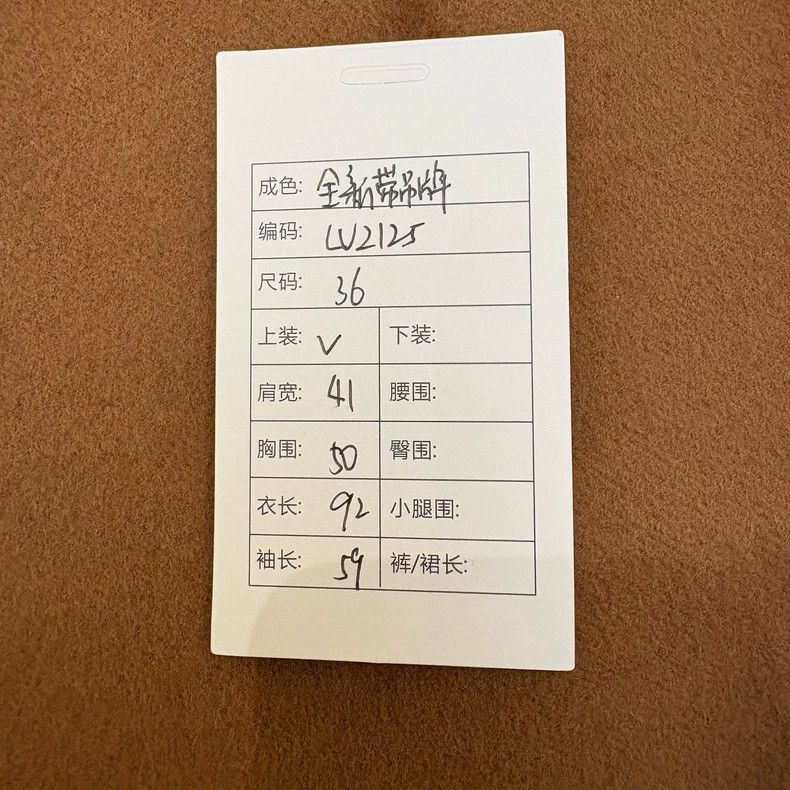 成色: 全新带吊牌
编码: LV2125
尺码: 36
上装: √ 下装:
肩宽: 41 腰围:
胸围: 50 臀围:
衣长: 92 小腿围:
袖长: 59 裤/裙长: